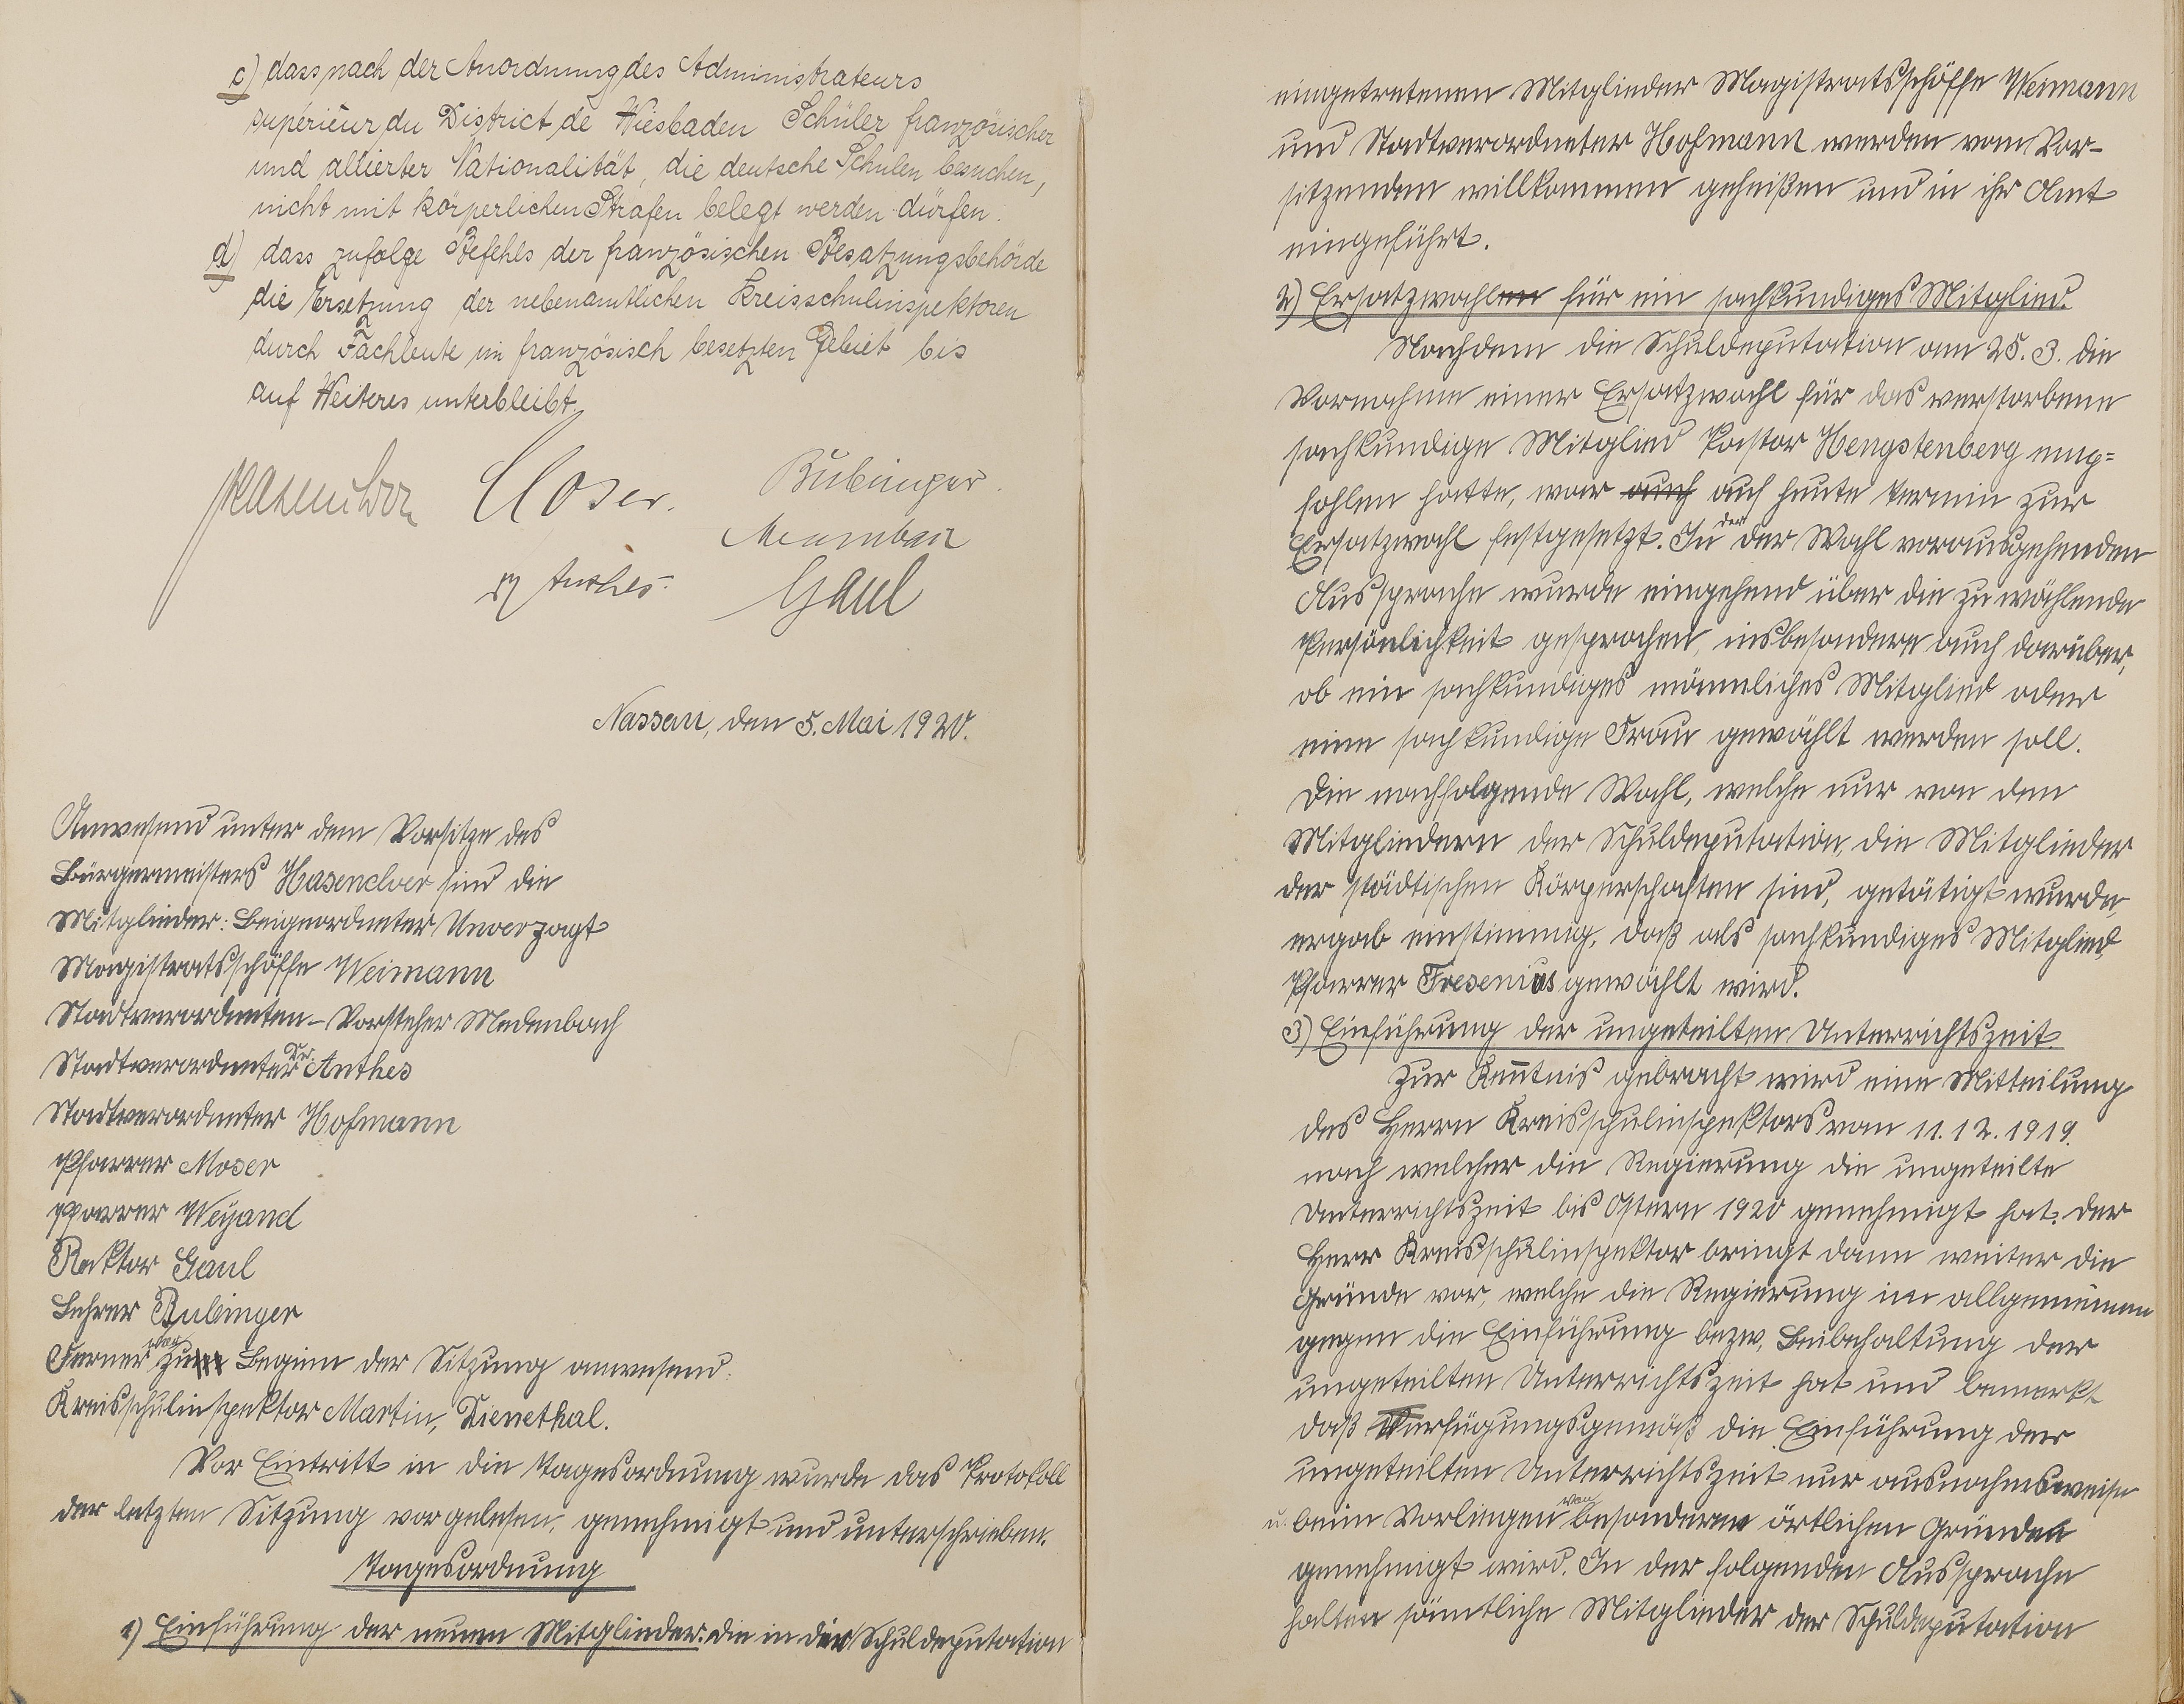 c) dass nach der Anordnung des Administrateurs
supérieur du District de Wiesbaden Schüler französischer
und alliierter Nationalität, die deutsche Schulen besuchen,
nicht mit körperlichen Strafen belegt werden dürfen.
d) dass zufolge Befehls der französischen Besatzungsbehörde
die Ersetzung der nebenamtlichen Kreisschulinspektoren
durch Fachleute im französisch besetzten Gebiet bis
auf Weiteres unterbleibt.
Hasenclever Moser. Bubinger.
Medenbach
Dr Anthes. Gaul
Nassau, den 5. Mai 1920.
Anwesend unter dem Vorsitze des
Bürgermeisters Hasenclver sind die
Mitglieder: Beigeordneter Unverzagt
Magistratsschöffe Weimann
Stadtverordneten-Vorsteher Medenbach
Stadtverordneter Dr. Anthes
Stadtverordneter Hofmann
Pfarrer Moser
Pfarrer Weyand
Rektor Gaul
Lehrer Bubinger
Ferner war zu Beginn der Sitzung anwesend:
Kreisschulinspektor Martin, Dienethal.
Vor Eintritt in die Tagesordnung wurde das Protokoll
der letzten Sitzung vorgelesen, genehmigt und unterschrieben.
Tagesordnung
1) Einführung der neuen Mitglieder. Die in die Schuldeputation
eingetretenen Mitglieder Magistratsschöffe Weimann
und Stadtverordneter Hofmann werden vom Vor-
sitzenden willkommen geheißen und in ihr Amt
eingeführt.
2) Ersatzwahlen für ein sachkundiges Mitglied.
Nachdem die Schuldeputation am 25. 3. die
Vornahme einer Ersatzwahl für das verstorbene
sachkundige Mitglied Pastor Hengstenberg emp=
fohlen hatte, war auch auf heute Termin zur
Ersatzwahl festgesetzt. In der der Wahl vorausgehenden
Aussprache wurde eingehend über die zu wählende
Persönlichkeit gesprochen, insbesondere auch darüber,
ob ein sachkundiges männliches Mitglied oder
eine sachkundige Frau gewählt werden soll.
Die nachfolgende Wahl, welche nur von den
Mitgliedern der Schuldeputation, die Mitglieder
der städtischen Körperschaften sind, getätigt wurde,
ergab einstimmig, daß als sachkundiges Mitglied
Pfarrer Fresenius gewählt wird.
3) Einführung der ungeteilten Unterrichtszeit.
Zur Kenntnis gebracht wird eine Mitteilung
des Herrn Kreisschulinspektors vom 11.12.1919.
nach welcher die Regierung die ungeteilte
Unterrichtszeit bis Ostern 1920 genehmigt hat. Der
Herr Kreisschulinspektor bringt dann weiter die
Gründe vor, welche die Regierung im allgemeinen
gegen die Einführung bezw. Beibehaltung der
ungeteilten Unterrichtszeit hat und bemerkt
daß verfügungsgemäß die Einführung der
ungeteilten Unterrichtszeit nur ausnahmsweise
u. beim Vorliegen von besonderen örtlichen Gründen
genehmigt wird. In der folgenden Aussprache
halten sämtliche Mitglieder der Schuldeputation